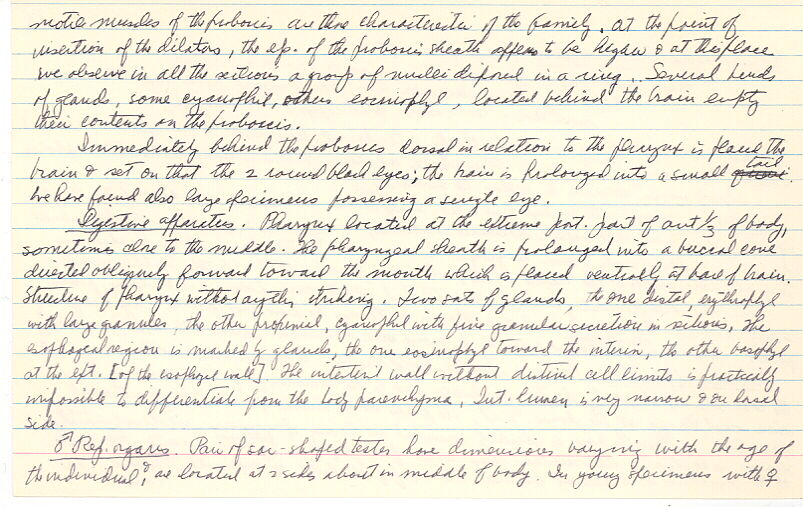 motor muscles of the proboscis are those characteristic of the family. At the point of
insertion of the dilators, the ep. of the proboscis sheath appears to be higher & at this place
we observe in all the sections a group of nuclei disposed in a ring. Several kinds
of glands, some cyanophil, others eosinophyl, located behind the brain empty
their contents on the proboscis.
Immediately behind the proboscis dorsal in relation to the pharynx is placed the
brain & set on that the 2 round black eyes; the brain is prolonged into a small tail.
We have found also large specimens possessing a single eye.
Digestive apparatus. Pharynx located at the extreme post. part of ant 1/3 of body,
sometimes close to the middle. The pharyngeal sheath is prolonged into a buccal cone
directed obliquely forward toward the mouth which is placed ventrally at base of brain.
Structure of pharynx without anything striking. Two sets of glands, the one distal, erythrophyl
with large granules, the other proximal, cyanophil with fine granular secretion in sections. The
esophageal region is marked by glands, the one eosinophyl toward the interior, the other basophyl
at the ext. [of the esophageal wall]. The intestin'l wall without distinct cell limits is practically
impossible to differentiate from the body parenchyma. Int. lumen is very narrow & on dorsal
side.
♂ Rep. organs. Pair of sac-shaped testes have dimensions varying with the age of
the individual, & are located at 2 sides about in middle of body. In young specimens with ♀